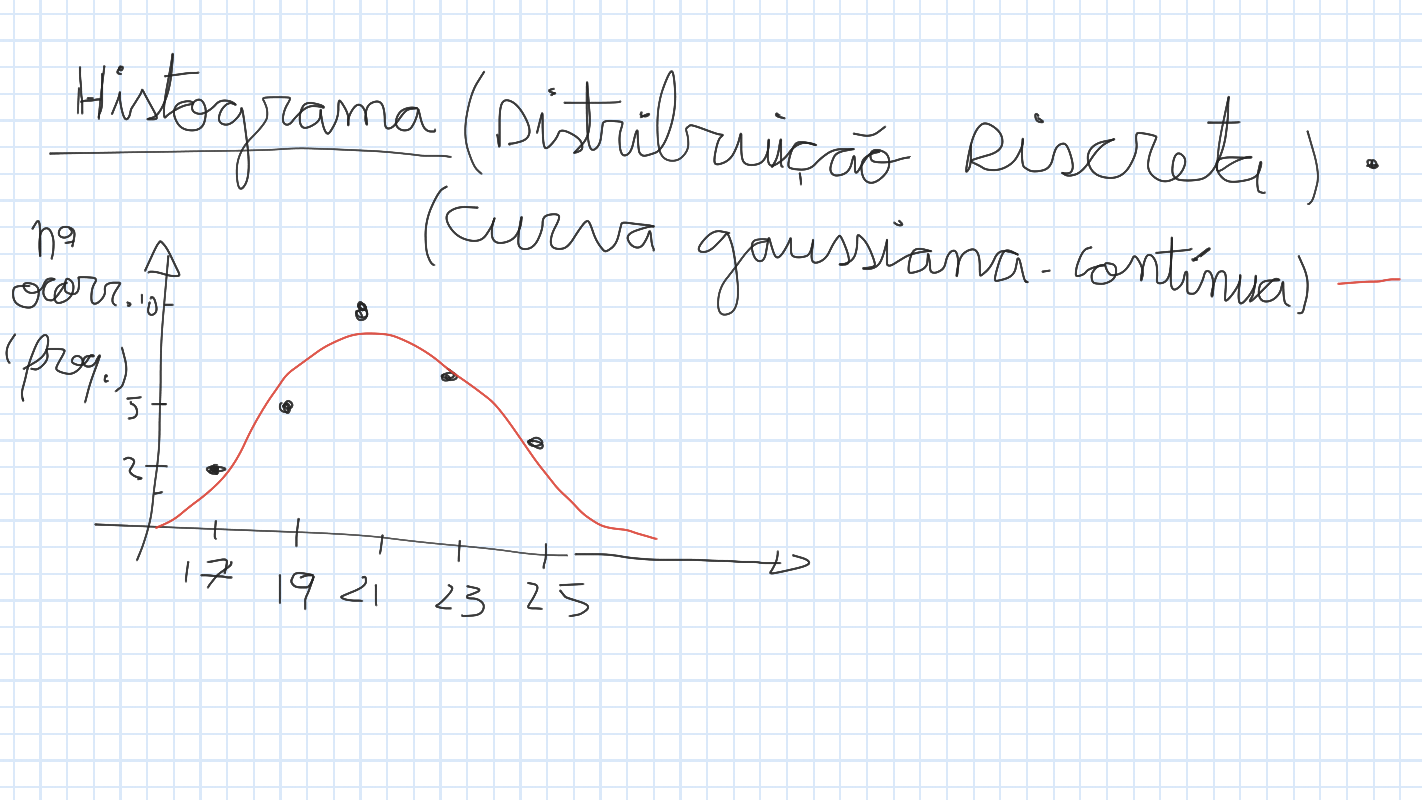 Histograma (Distribuição Discreta) •
(Curva gaussiana - contínua) —
nº
ocorr.
(freq.)
10
5
2
17 19 21 23 25